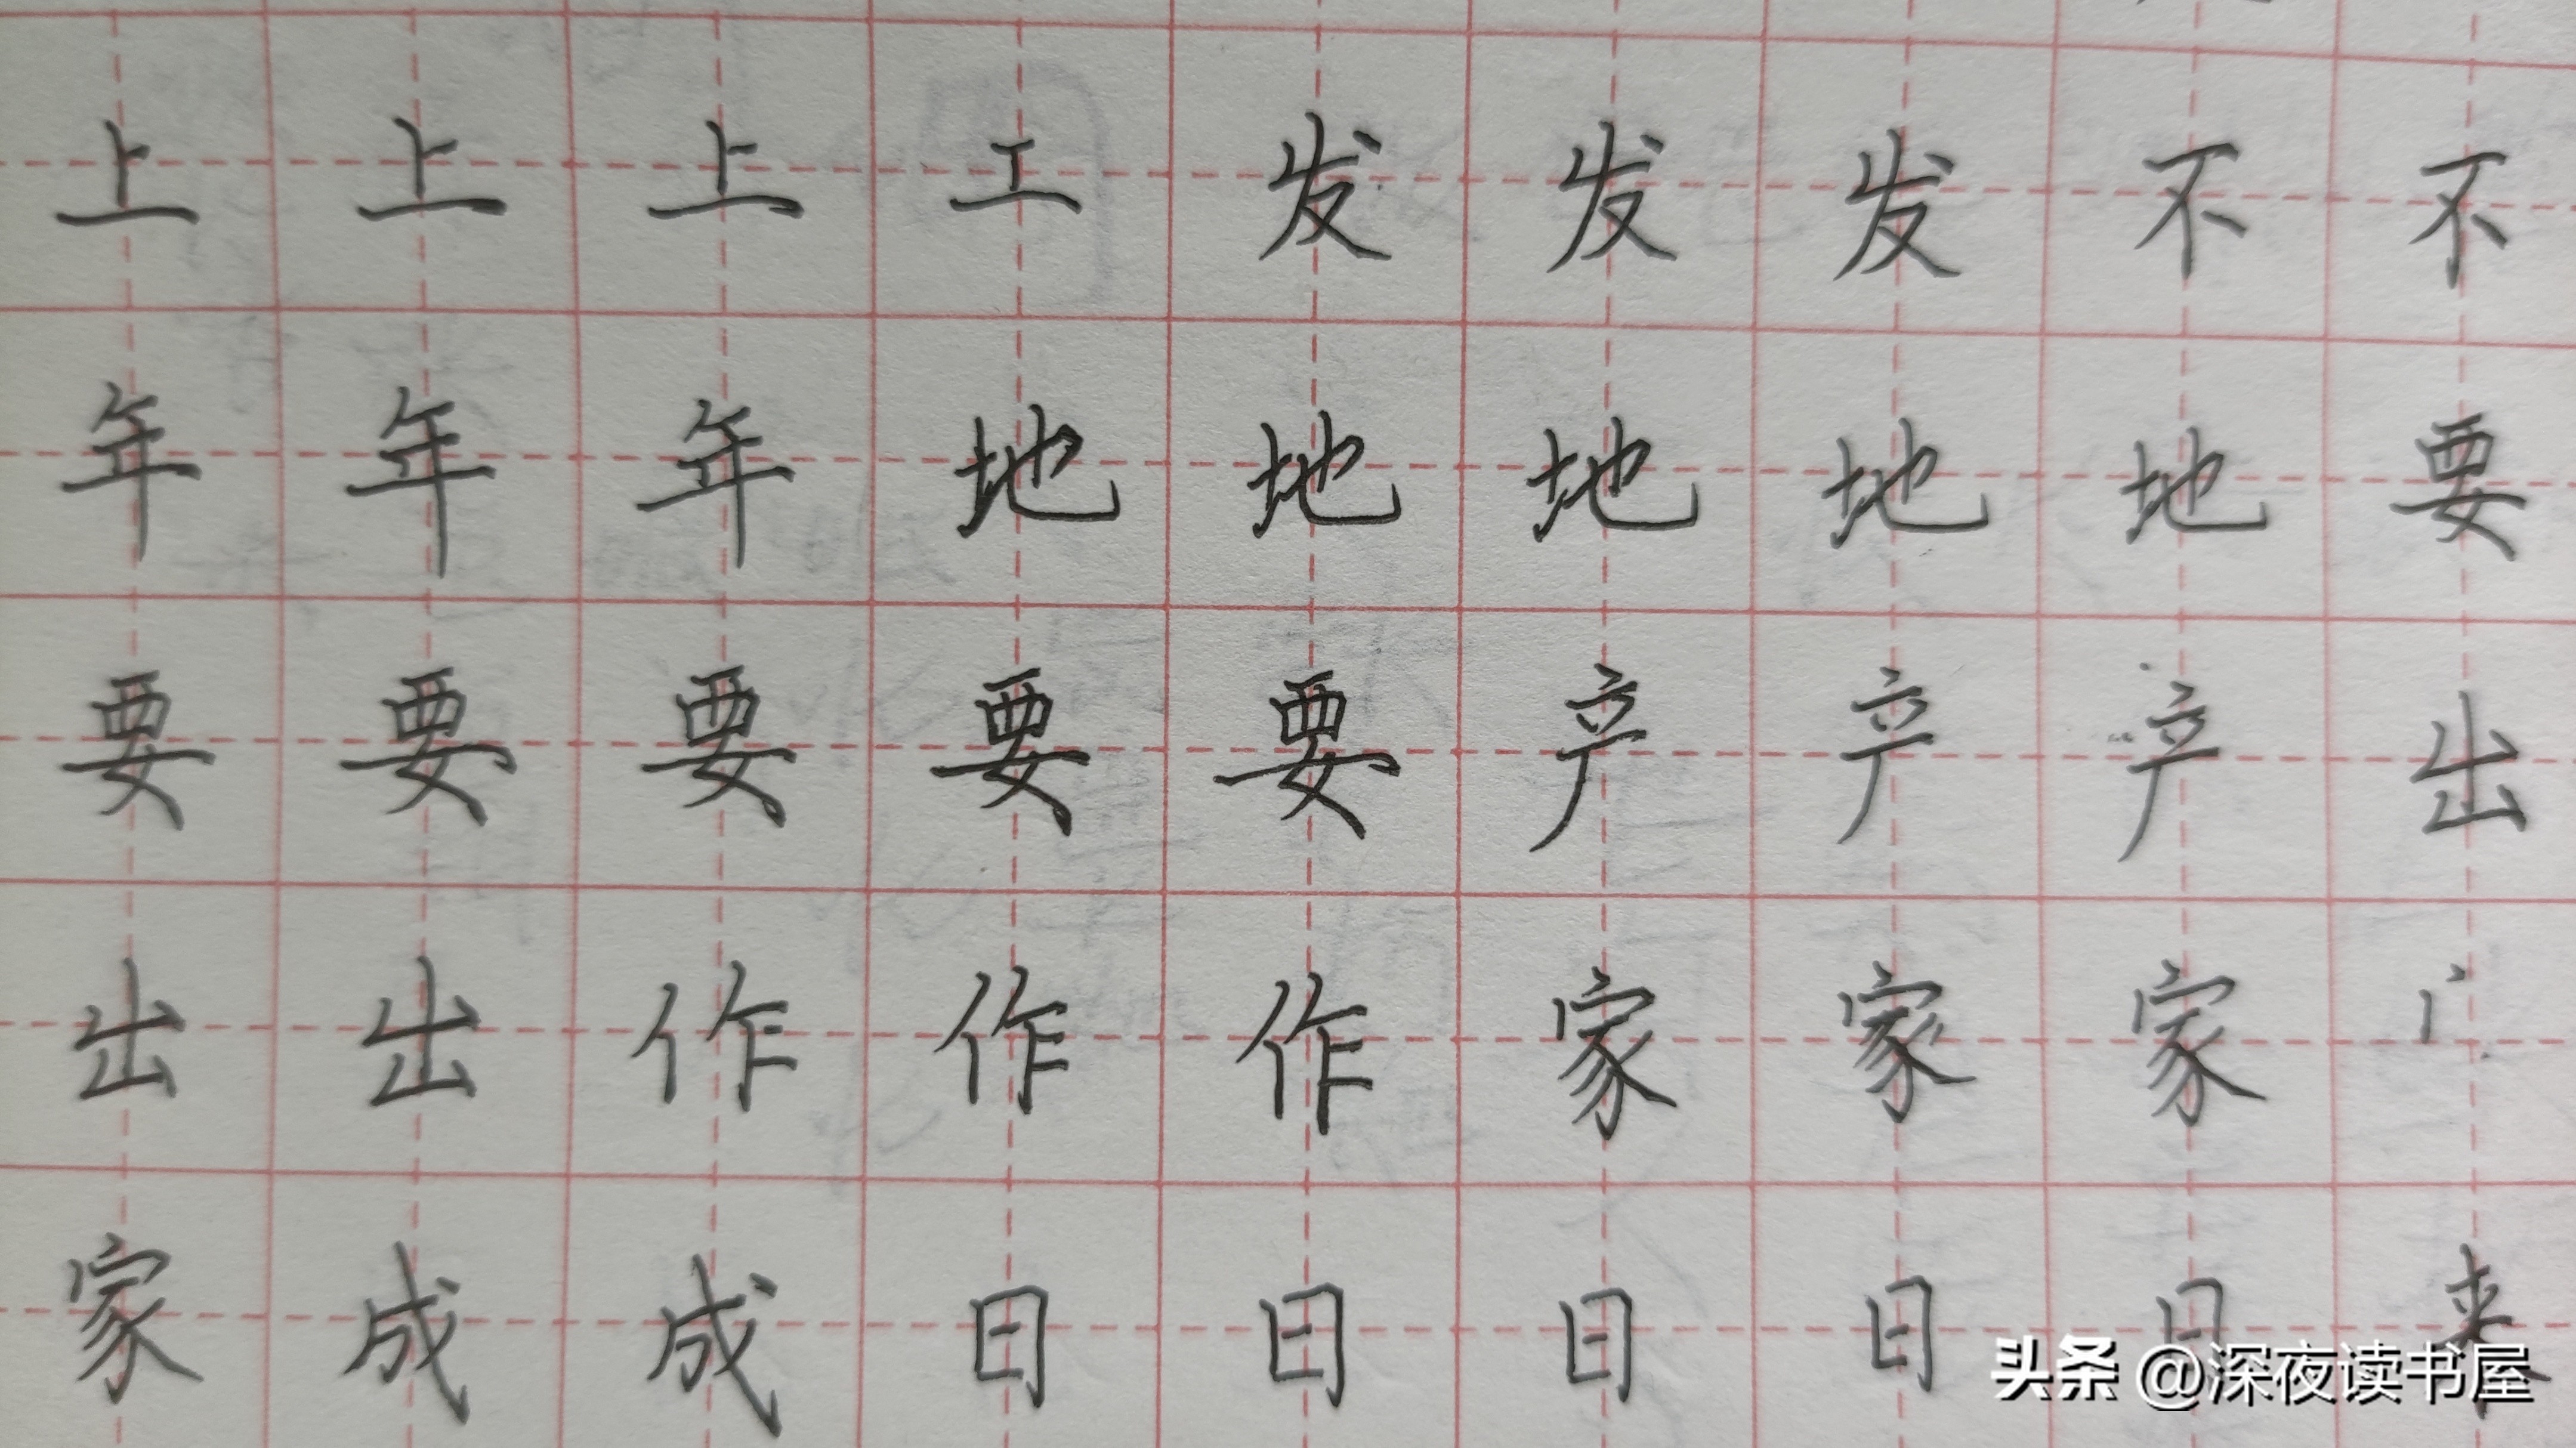 上上上工发发发不不
年年年地地地地地要
要要要要要产产产出
出出作作作家家家
家成成日日日日日来
头条 @深夜读书屋